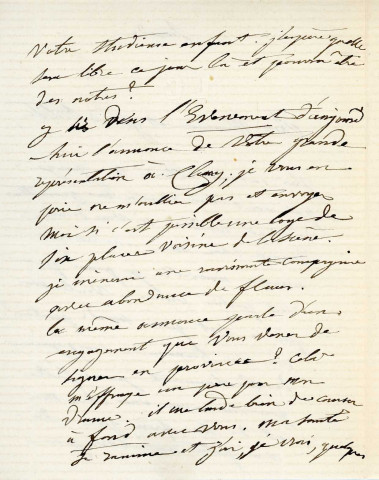 Votre studieuse enfant. j'espère qu'elle
sera libre ce jour là et pourra être
des notres?
dans l'Evènement d'aujourd
hui l'annonce de votre grande
représentation à Cluny, je vous en
prie ne m'oubliez pas et envoyez
moi si c'est possible une loge de
six places voisine de la scène.
je mènerai une ravissante compagnie
avec abondance de fleurs.
la même annonce parle d'un
engagement que vous venez de
signer en province? Cela
m'effraye un peu pour mon
Drame. il me tarde bien de causer
à fond avec vous. ma santé
se ranime et j'ai, je crois, quelques